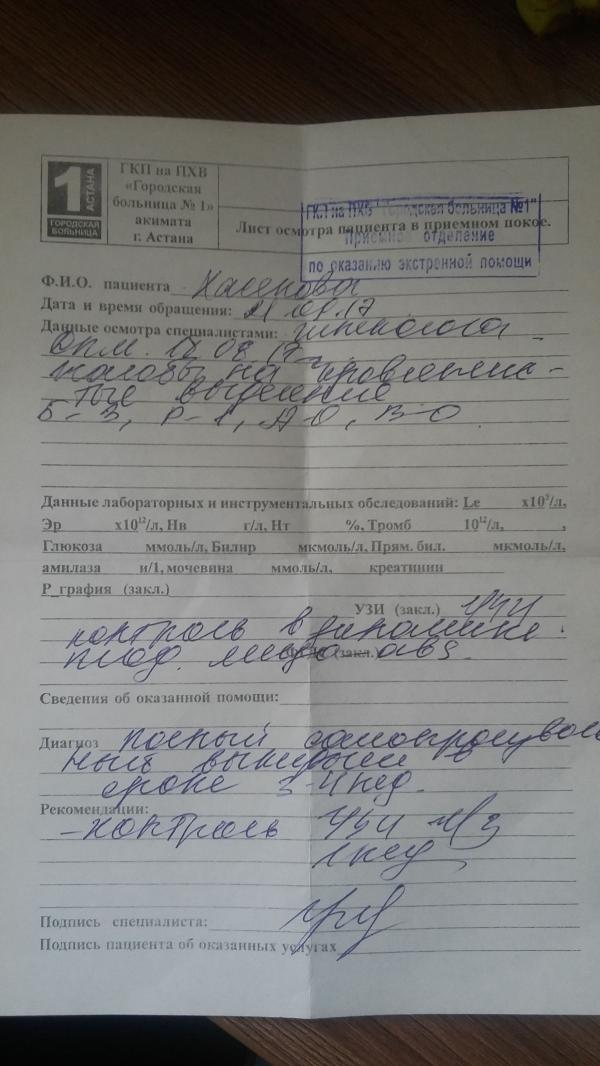 1
АСТАНА
ГОРОДСКАЯ
БОЛЬНИЦА
ГКП на ПХВ
«Городская
больница № 1»
акимата
г. Астана
ГКП на ПХВ "Городская больница №1"
Лист осмотра пациента в приемном покое.
Приемное отделение
по оказанию экстренной помощи
Ф.И.О. пациента
Дата и время обращения: 09.17
Данные осмотра специалистами: гинеколога
жалобы на кровянис-
тые выделение
Б-3, Р-1, А-0, В-0
Данные лабораторных и инструментальных обследований: Le х10⁹/л,
Эр х10¹²/л, Нв г/л, Нт %, Тромб 10¹²/л, ,
Глюкоза ммоль/л, Билир мкмоль/л, Прям. бил. мкмоль/л,
амилаза и/1, мочевина ммоль/л, креатинин
Р_графия (закл.)
УЗИ (закл.) УЗИ
контроль в динамике.
плод. яйцо abs. (закл.)
Сведения об оказанной помощи:
Диагноз полный самопроизволь
ный выкидыш в
сроке 3-4 нед.
Рекомендации:
- контроль УЗИ ч/з
1 нед
Подпись специалиста:
Подпись пациента об оказанных услугах